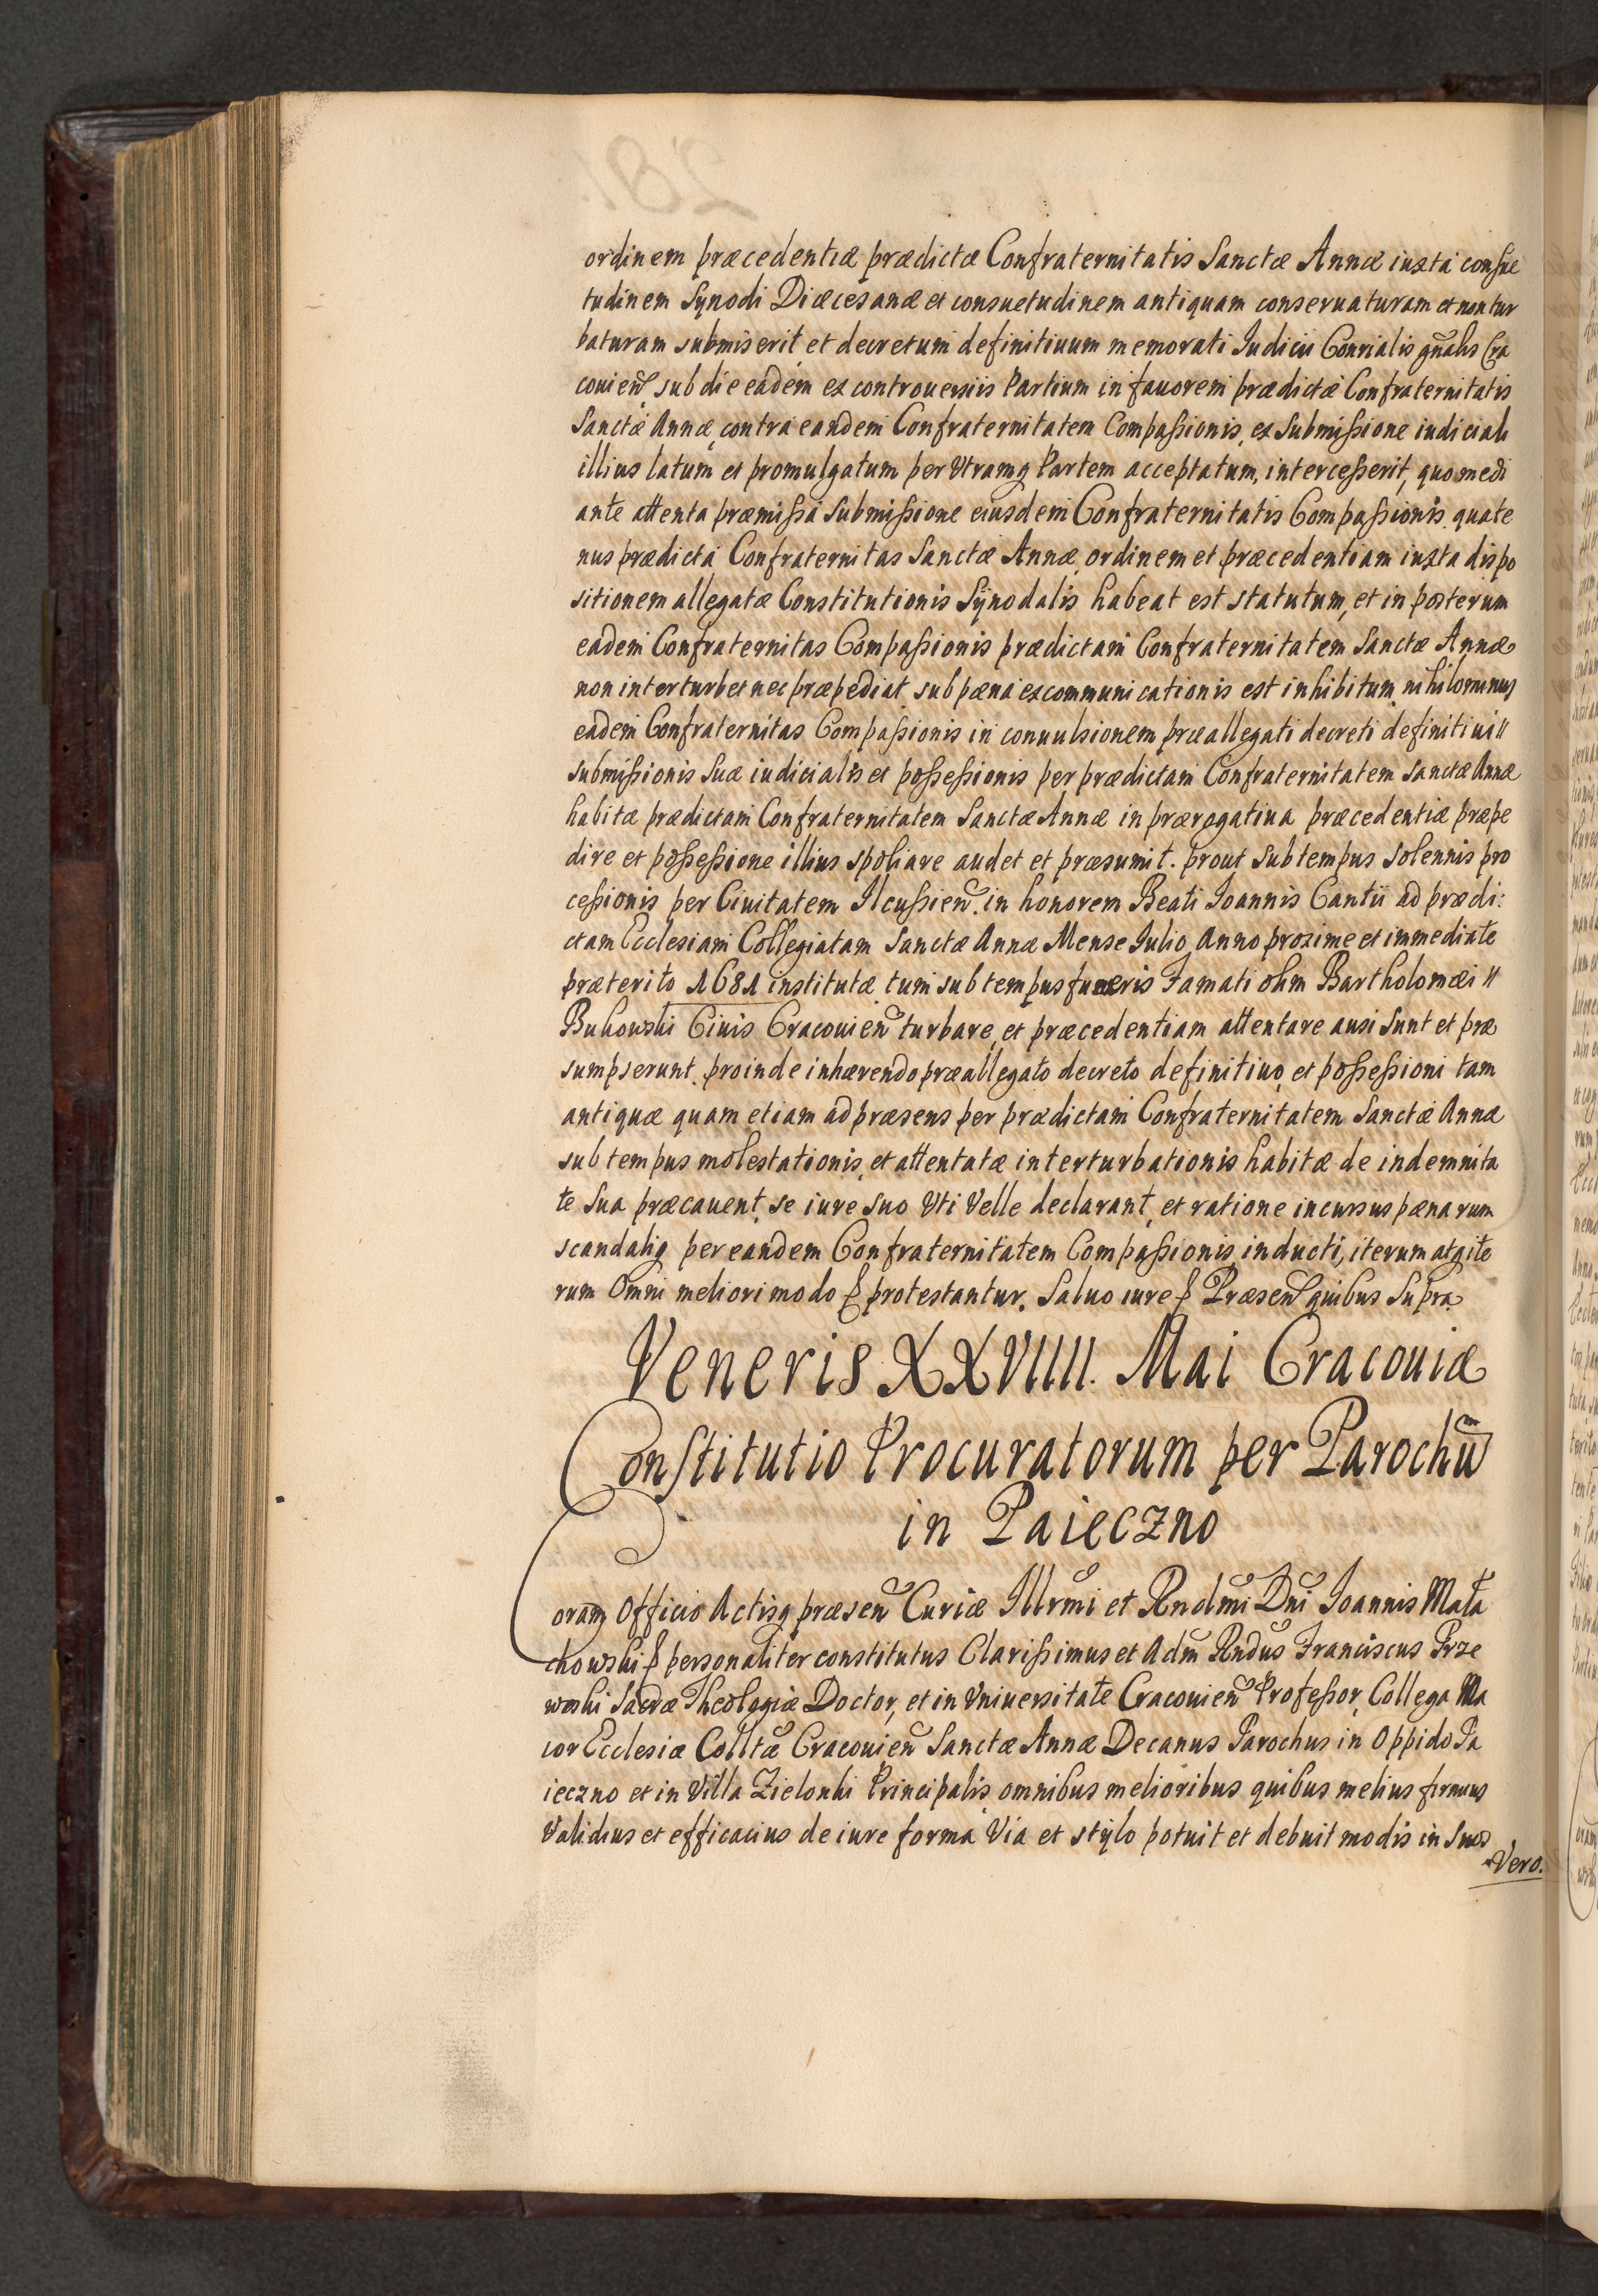 ordinem præcedentiæ prædictæ Confraternitatis Sanctæ Annæ iuxta consue
tudinem Synodi Diæcesanæ et consuetudinem antiquam conseruaturam et non tur
baturam submiserit et decretum definitiuum memorati Iudicii Consrialis gñalis Cra
couien̄ sub die eadem ex controuersiis Partium in fauorem prædictæ Confraternitatis
Sanctæ Annæ contra eandem Confraternitatem Compaßionis, ex Submißione iudiciali
illius latum et promulgatum per Vtramq Partem acceptatum, interceßerit, quo medi
ante attenta præmißa Submißione eiusdem Confraternitatis Compaßionis quate
nus prædicta Confraternitas Sanctæ Annæ, ordinem et præcedentiam iuxta dispo
sitionem allegatæ Constitutionis Synodalis habeat est statutum, et in posterum
eadem Confraternitas Compaßionis prædictam Confraternitatem Sanctæ Annæ
non interturbet nec præpediat sub pæna excommunicationis est inhibitum, nihilominus
eadem Confraternitas Compaßionis in conuulsionem præallegati decreti definitiui //
submißionis Suæ iudicialis et poßeßionis per prædictam Confraternitatem Sanctæ Annæ
habitæ prædictam Confraternitatem Sanctæ Annæ in prærogatiua præcedentiæ præpe
dire et poßeßione illius spoliare audet et præsumit. prout Sub tempus Solennis pro
ceßionis per Ciuitatem Ilcußien̄. in honorem Beati Joannis Cantii ad prædi:
ctam Ecclesiam Collegiatam Sanctæ Annæ Mense Iulio Anno proxime et immediate
præterito 1681 institutæ tum sub tempus funeris Famati olim Bartholomæi //
Bukowski Ciuis Cracouien̄ turbare, et præcedentiam attentare ausi Sunt et præ
sumpserunt. proinde inhærendo præallegato decreto definitiuo, et poßeßioni tam
antiquæ quam etiam ad præsens per prædictam Confraternitatem Sanctæ Annæ
sub tempus molestationis, et attentatæ interturbationis habitæ de indemnita
te Sua præcauent, se iure suo Vti Velle declarant, et ratione incursus pænarum
scandaliq per eandem Confraternitatem Compaßionis inducti, iterum atq ite
rum Omni meliori modo protestantur. Saluo iure Præsen̄ quibus Supra
Veneris XXVIIII. Mai Cracouiæ
Constitutio Procuratorum per Parochū
in Paieczno
Coram Officio Actisq præsen̄ Curiæ Illrmi et Rndmi Dni Joannis Mała
chowski personaliter constitutus Clarißimus et Adm Rndus Franciscus Prze
woski Sacræ Theologiæ Doctor, et in Vniuersitate Cracouien̄ Profeßor, Collega Ma
ior Ecclesiæ Colltæ Cracouien̄ Sanctæ Annæ Decanus Parochus in Oppido Pa
ieczno et in Villa Zielonki Principalis omnibus melioribus quibus melius firmius
Validius et efficacius de iure forma Via et stylo potuit et debuit modis in Suos
Vero.